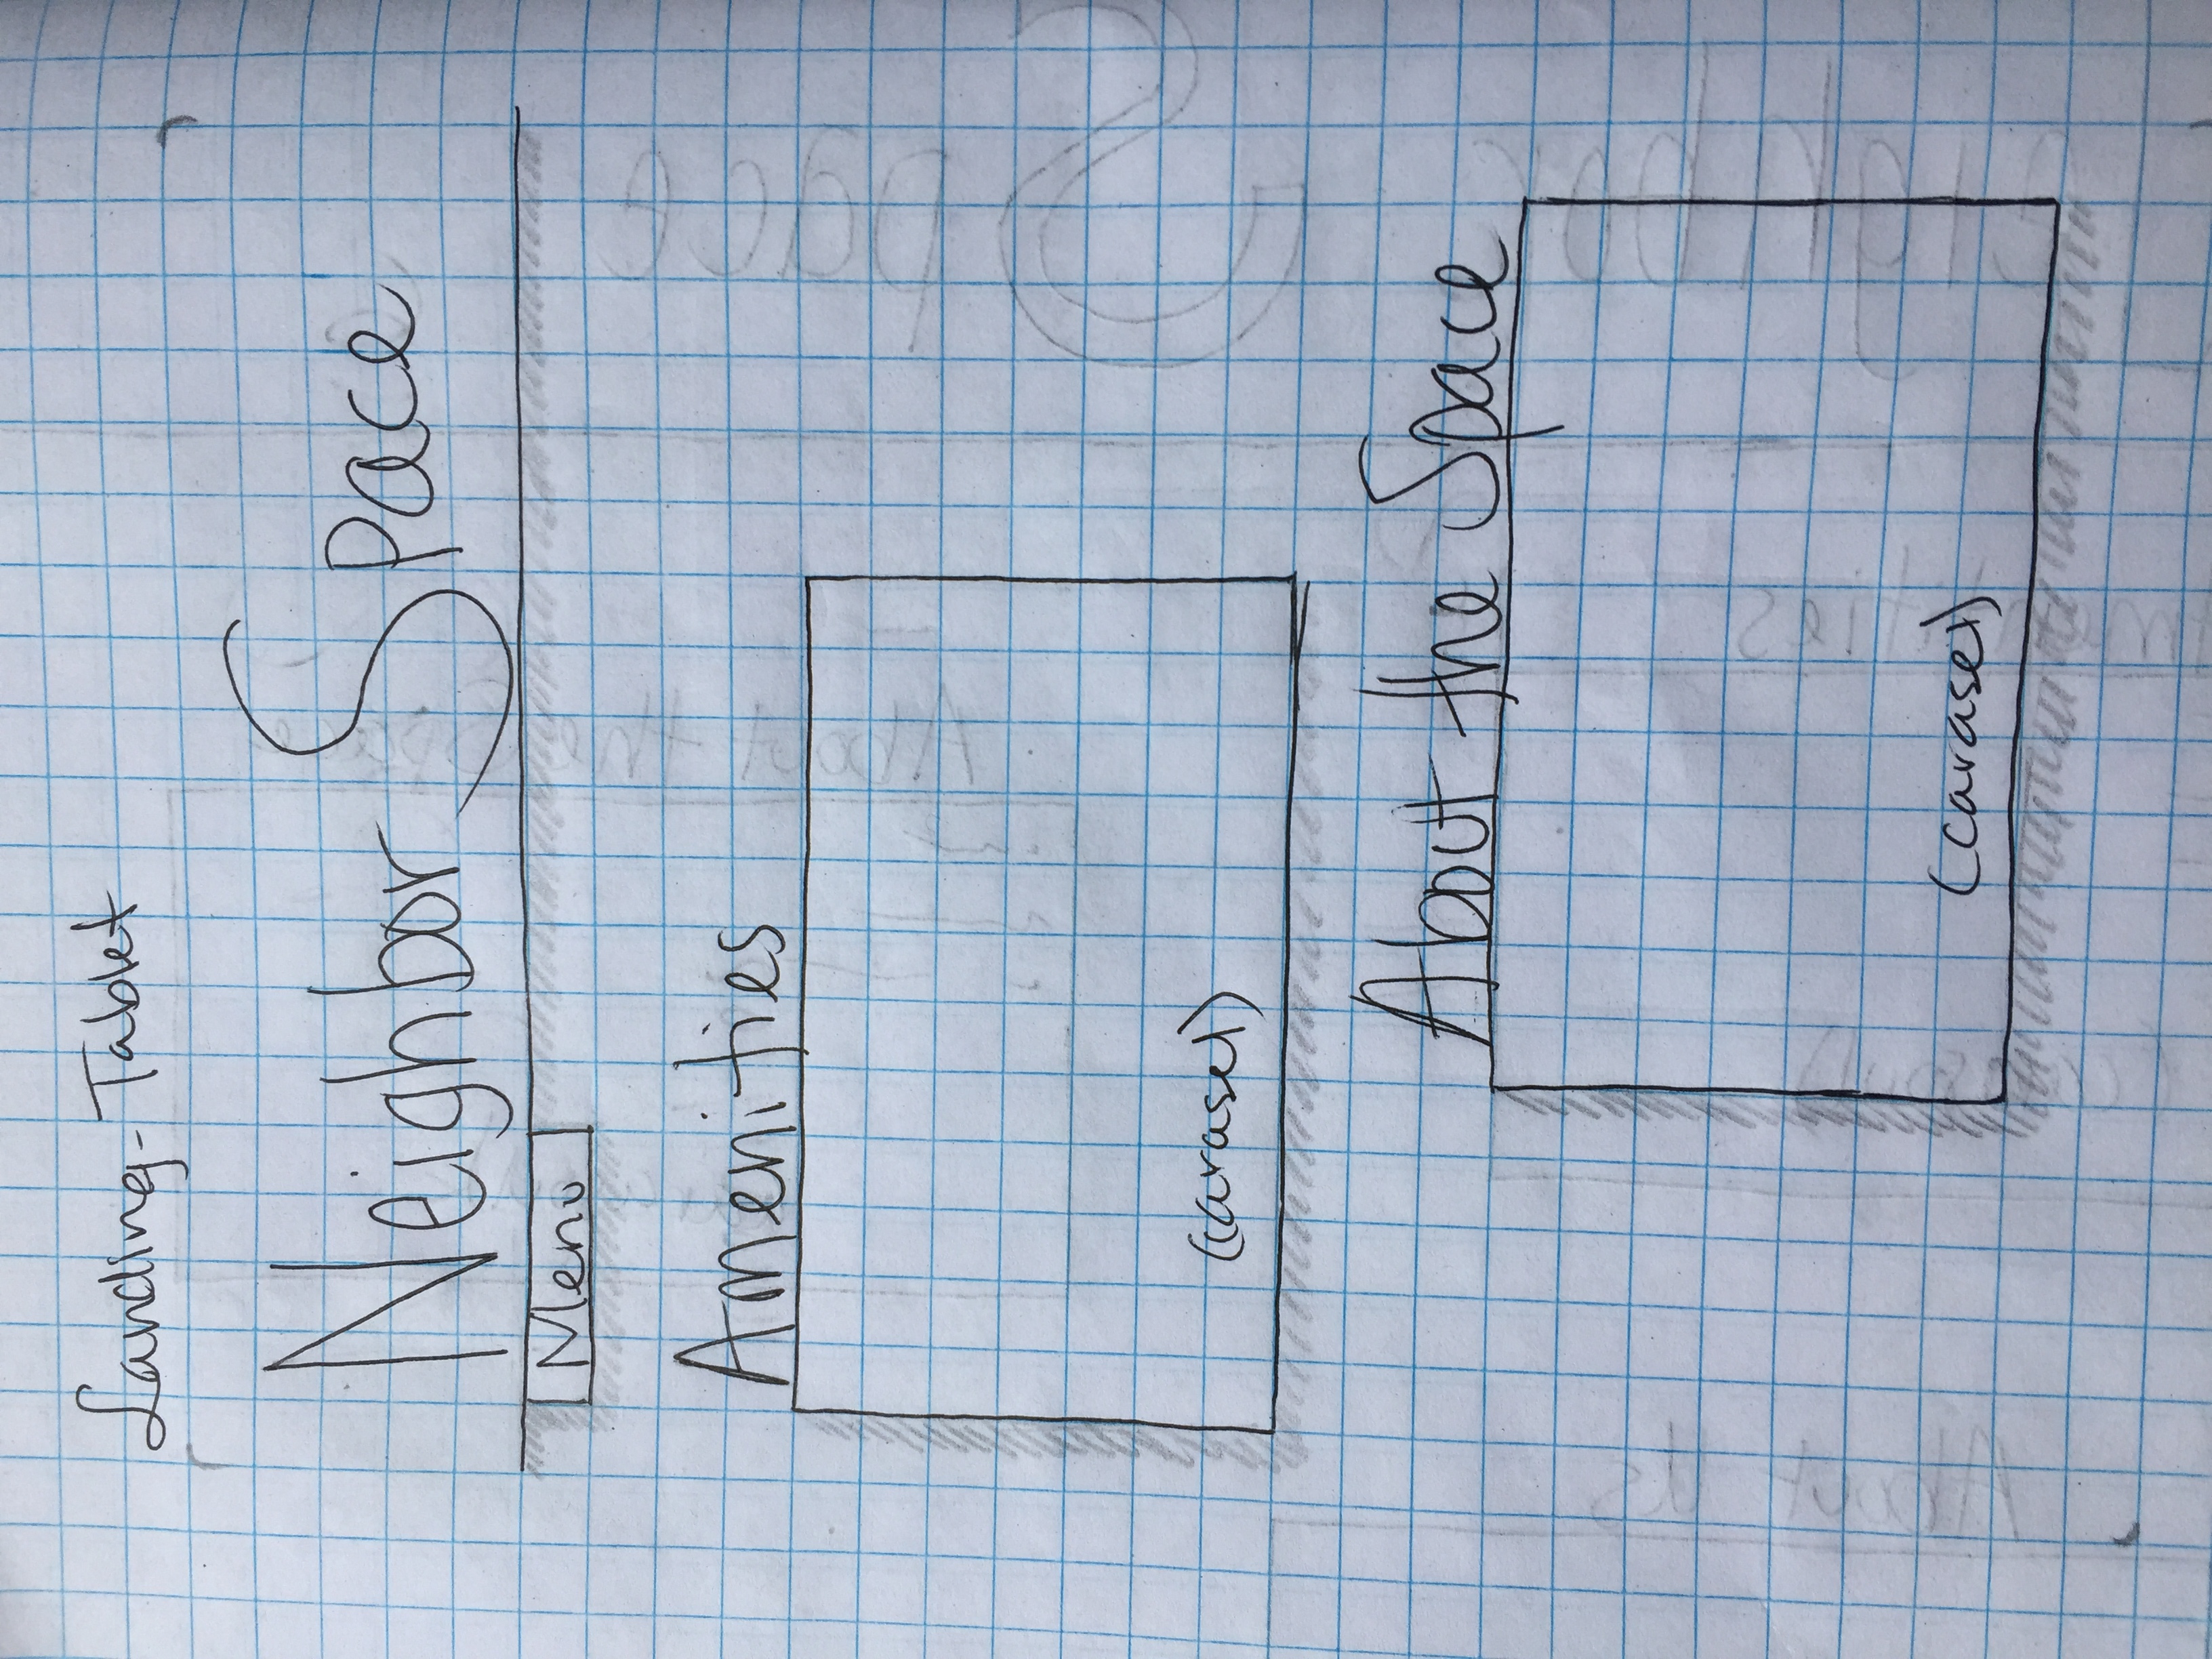 Landing - Tablet
Neighbor Space
Menu
Amenities
(carasel)
About the Space
(carasel)